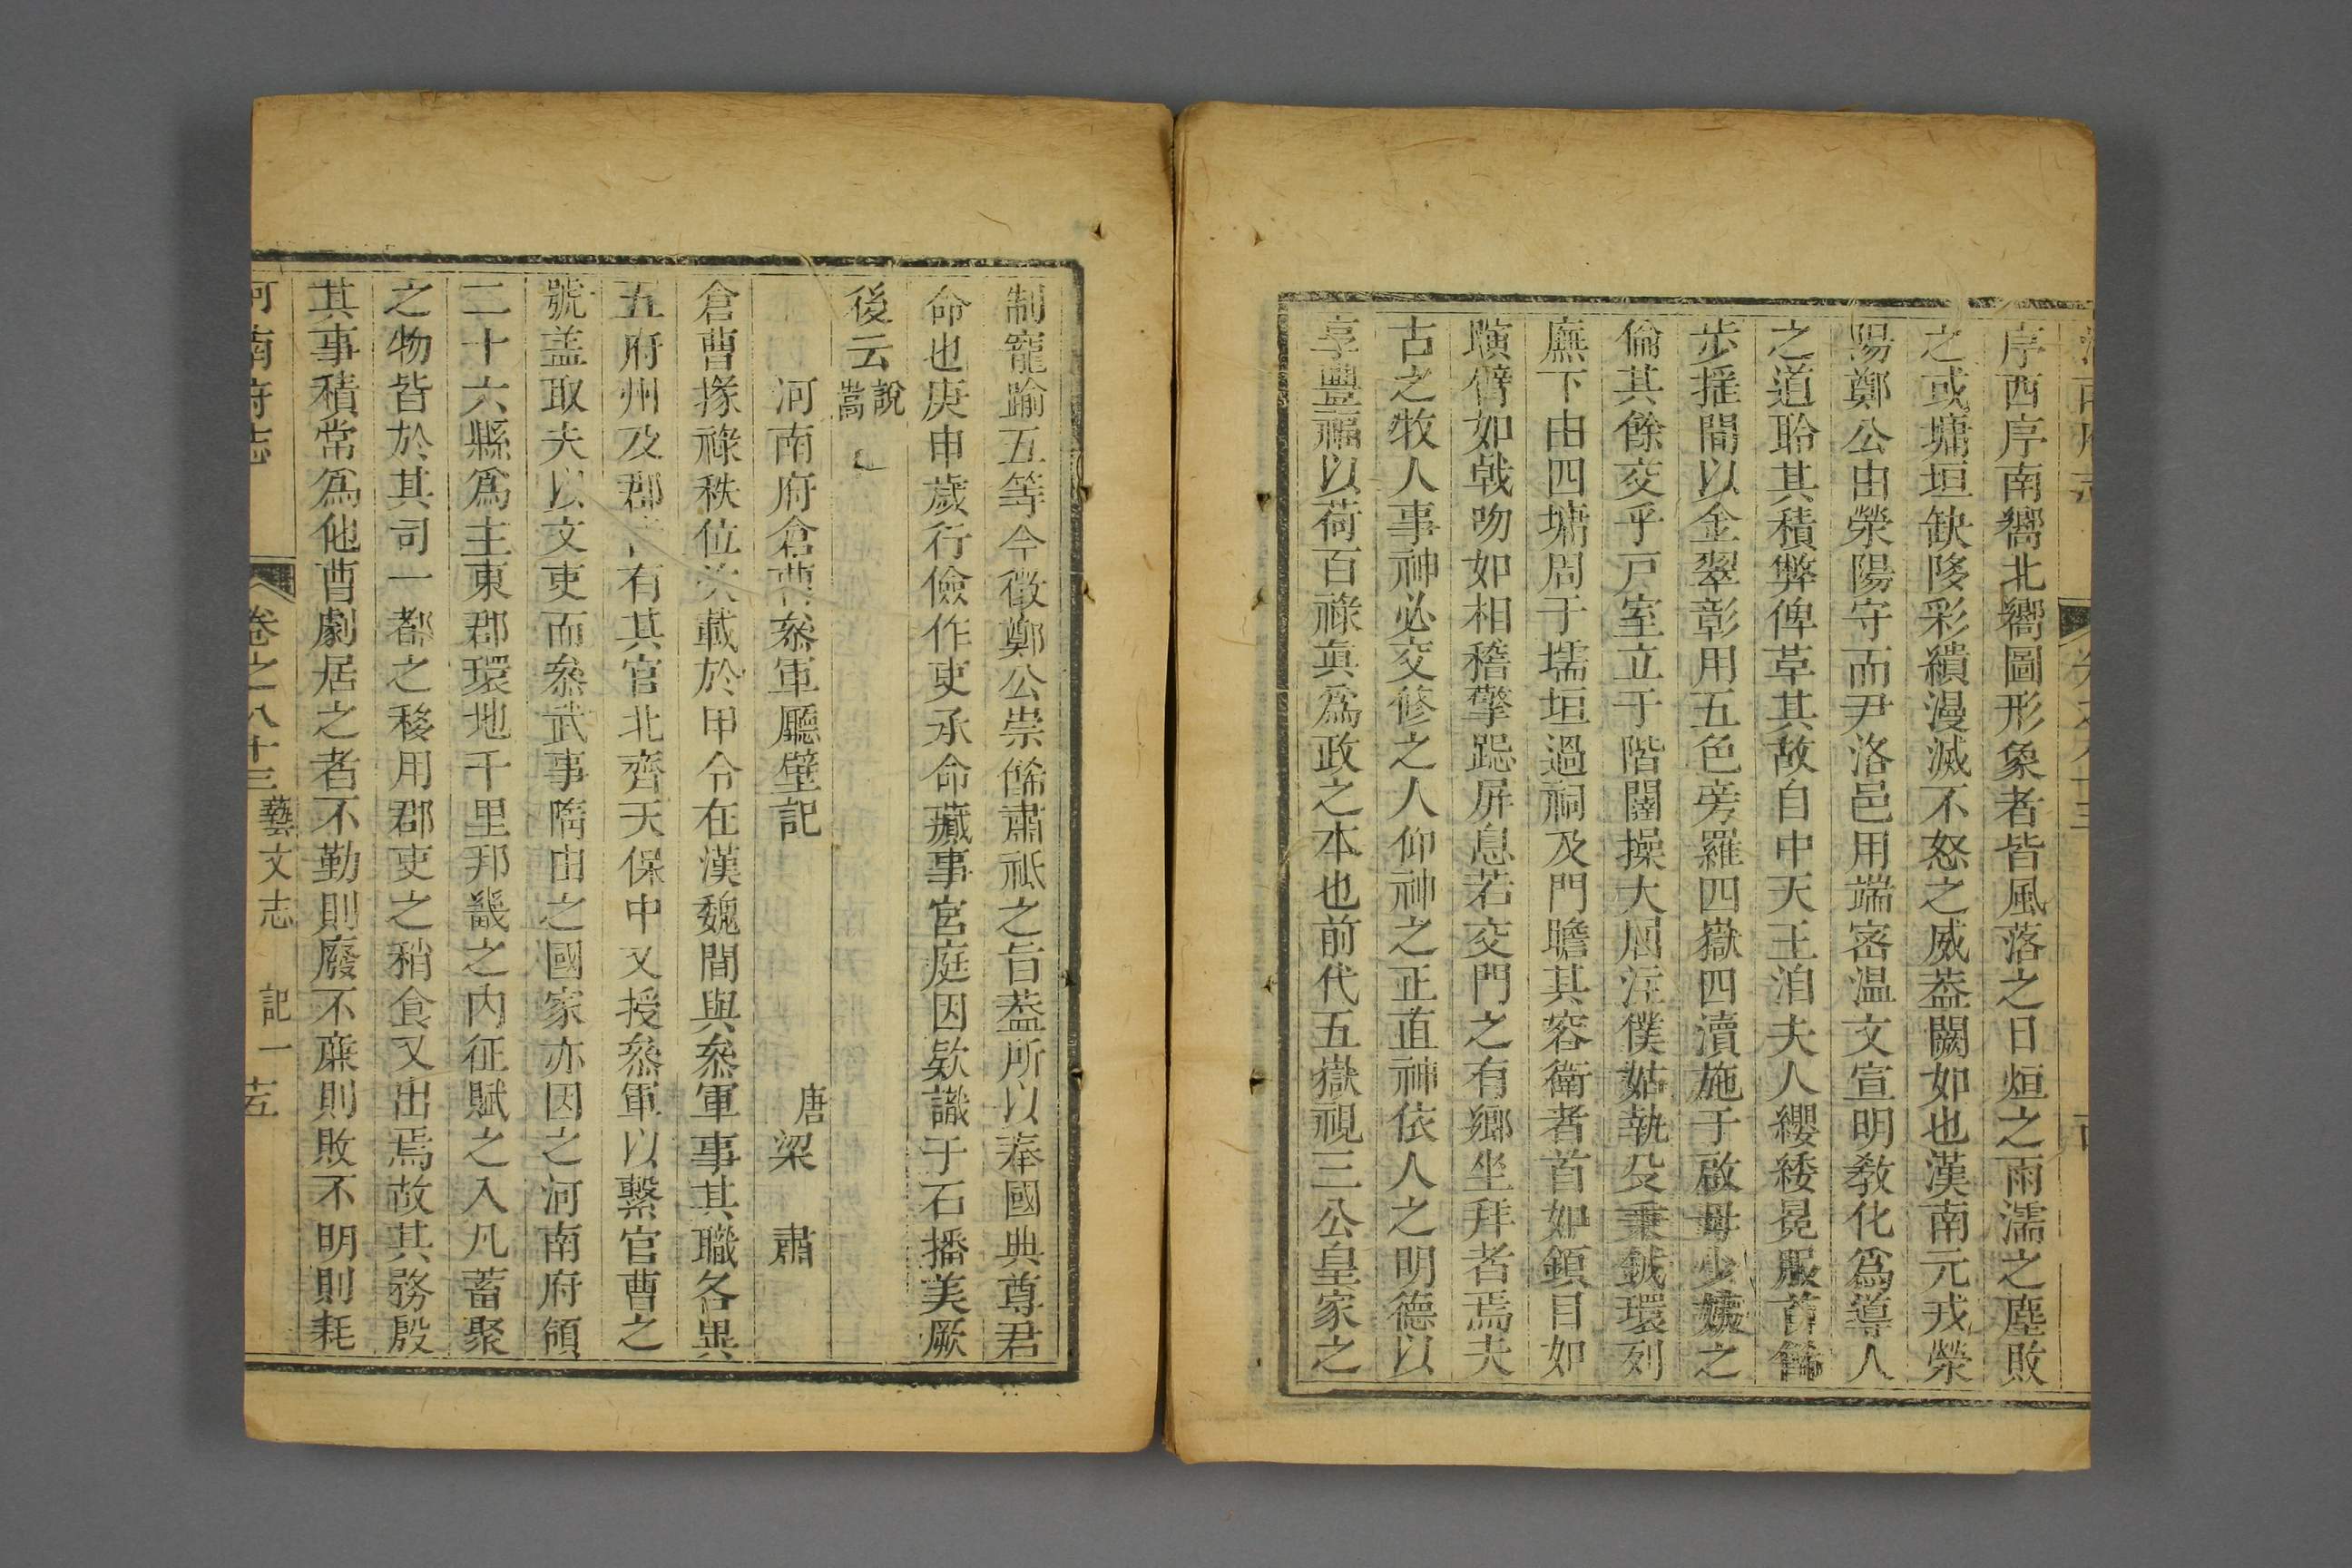 序西序南嚮北嚮圖形象者皆風落之日烜之雨濡之塵敗
之或墉垣缺陊彩繢漫滅不怒之威葢闕如也漢南元戎滎
陽鄭公由滎陽守而尹洛邑用端密温文宣明敎化爲導人
之道聆其積弊俾草其故自中天王洎夫人纓緌冕服首飾
步摇間以金翠彰用五色旁羅四嶽四瀆施于啟母少姨之
倫其餘交乎戸室立于階闥操大屈注僕姑執殳秉鉞環列
廡下由四墉周于壖垣過祠及門瞻其容衞者首如頓目如
瞚臂如戟吻如相稽擎跽屏息若交門之有鄉坐拜者焉夫
古之牧人事神必交修之人仰神之正直神依人之明德以
享豐福以荷百祿眞爲政之本也前代五嶽視三公皇家之
制寵踰五等今徵鄭公崇飾肅祗之旨葢所以奉國典尊君
命也庚申歲行儉作吏承命蕆事宮庭因欵識于石播美厥
後云 說嵩
河南府倉曹叅軍廳壁記 唐梁 肅
倉曹掾祿秩位次載於甲令在漢魏間與叅軍事其職各異
五府州及郡 有其官北齊天保中又授叅軍以繫官曹之
號盖取夫以文吏而叅武事隋由之國家亦因之河南府領
二十六縣爲主東郡環地千里邦畿之内征賦之入凡蓄聚
之物皆於其司一都之穆用郡吏之稍食又出焉故其務殷
其事積常爲他曹劇居之者不勤則廢不廉則敗不明則耗
河南府志 卷之八十三 藝文志 記一 十五